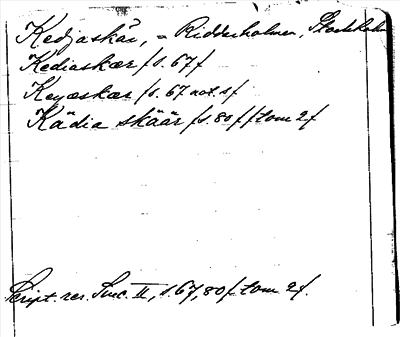 Kedjaskär, = Riddarholmen, Stockholm
Kediaskær /s. 67/
Keyæskær /s. 67 not. s/
Kädia skäär /s. 80 f/ tom 2/
Script. rer. Svec. II, s. 67, 80 f tom 2/.